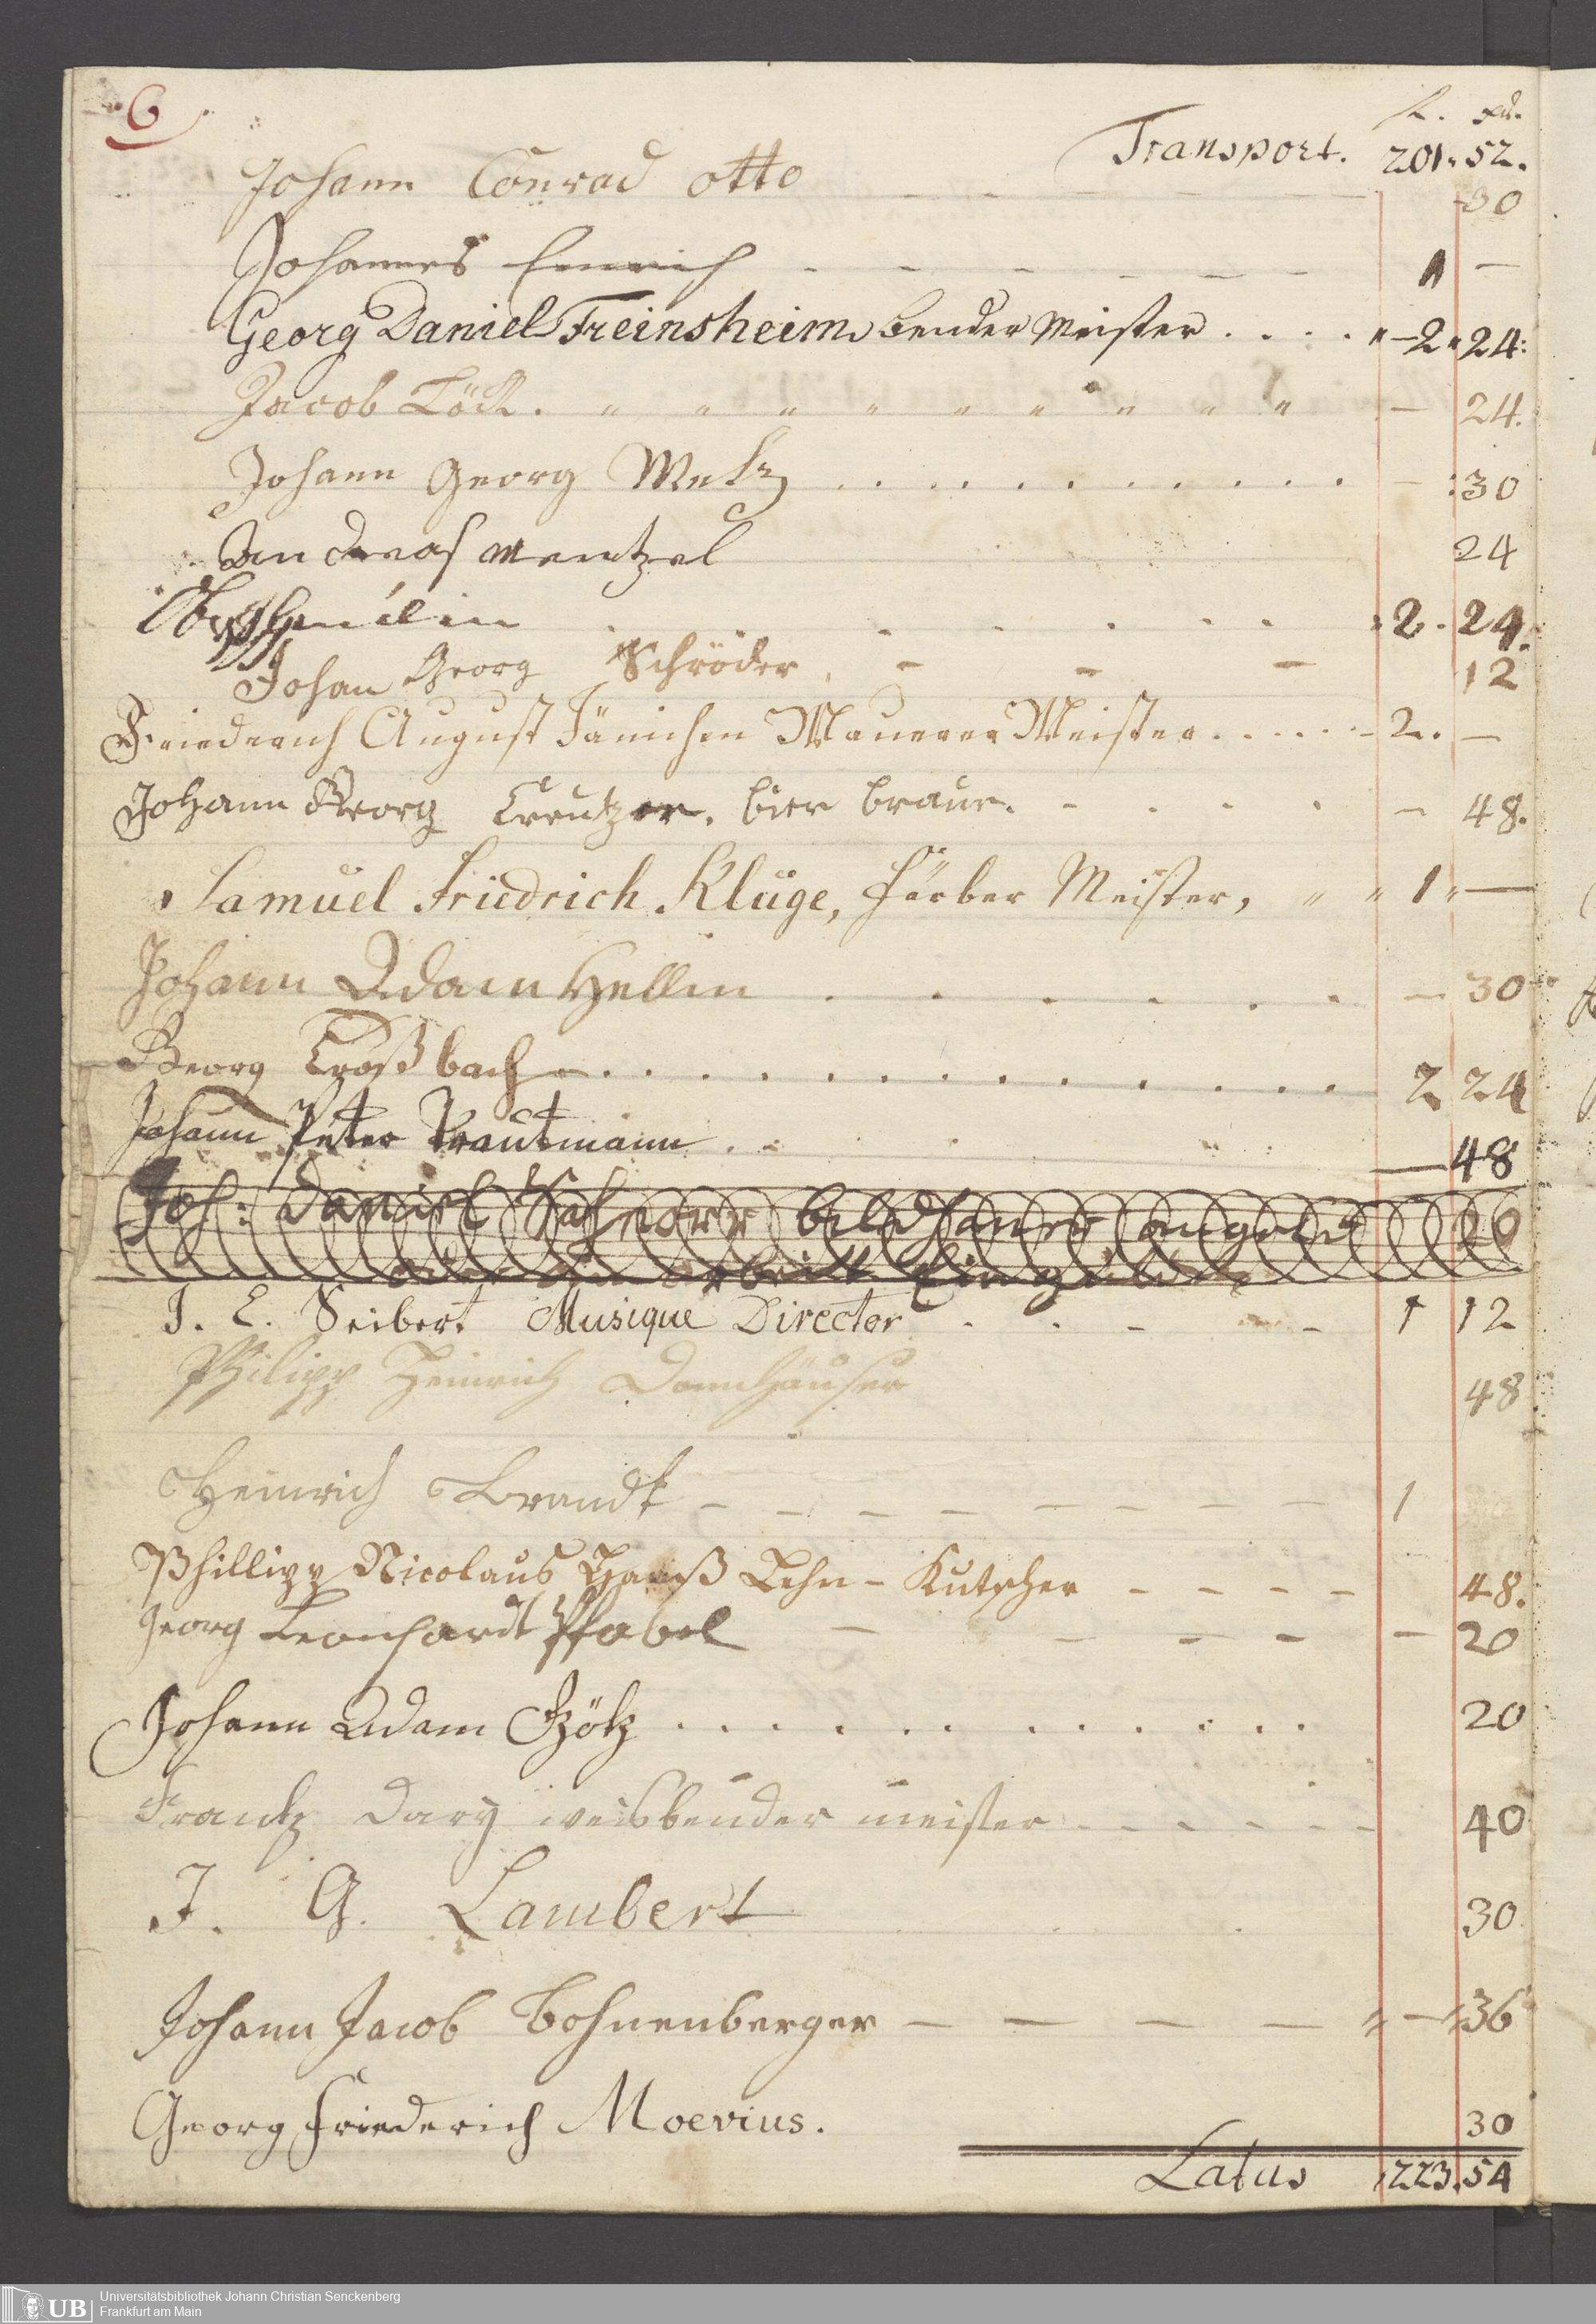 6
f. xr.
Transport. 201. 52.
Johann Conrad Otto - - - - - 30
Johannes Emrich - - - - - - 1 -
Georg Daniel Freinsheim, bender Meister . . . . " - 2 " 24:
Jacob Löck. " " " " " " " " " - 24.
Johann Georg Metz . . . . . . . . . . - : 30
Andreas Mentzel 24
. . . . . . 2. 24.
Johan Georg Schröder, - - - 12
Friederich August Jänichen Maurer Meister . . . . . - 2. -
Johann Georg Creutzer. bier braur. - . . . - 48.
Samuel Friedrich Kluge, Färber Meister, " " 1 " —
Johann Adam Hellm . . . . . . - 30
Georg Croßbach - . . . . . . . . . . . . . 2 24
Johann Peter Trautmann . . . . — 48
Joh: Daniel bildhauer
J. E. Seibert Musique Director . . - - 1 12
Philipp Heinrich Dannhäuser 48
Heinrich Brandt - - - - - - - - 1
Phillipp Nicolaus Hauß Lehn-Kutscher - - - - 48.
Georg Leonhardt Pfabel - - - - - 20
Johann Adam Götz . . . . . . . . . . . 20
Frantz Dary weisbender meister - - - - - - 40
J. G. Lambert 30
Johann Jacob Bohnenberger — — — — " - " 36
Georg Friederich Moevius. 30
Latus 223. 54
Universitätsbibliothek Johann Christian Senckenberg
UB
Frankfurt am Main